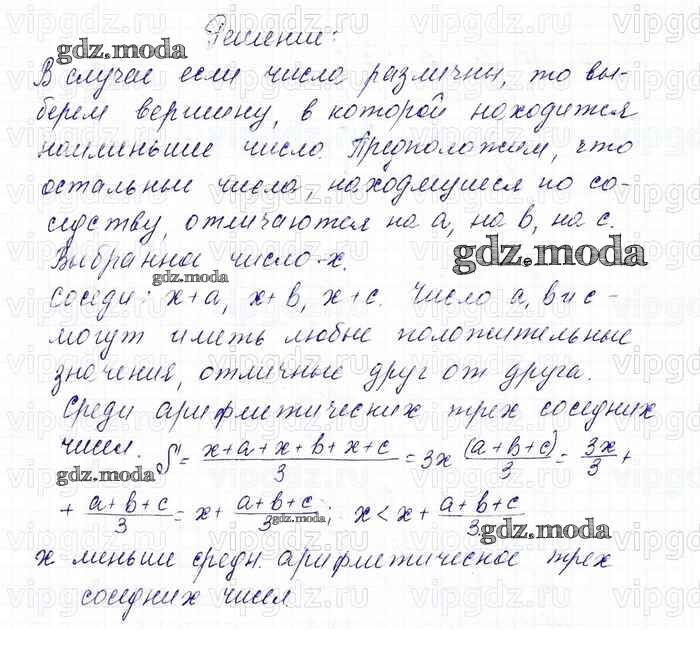 Решение:
В случае если числа различны, то вы-
берем вершину, в которой находится
наименьшие число. Предположем, что
остальные числа, находящиеся по со-
седству, отличаются на a, на b, на c.
Выбранна число-x.
соседи: x+a, x+b, x+c. Число a, b и c-
могут иметь любые положительные
значения, отличные друг от друга.
Среди арифметических трех соседних
чисел. S = (x+a+x+b+x+c)/3 = 3x (a+b+c)/3 = 3x/3 +
+ (a+b+c)/3 = x+ (a+b+c)/3; x < x+ (a+b+c)/3
x меньше средн. арифметическое трех
соседних чисел
gdz.moda
gdz.moda
gdz.moda
gdz.moda
gdz.moda
gdz.moda
vipgdz.ru